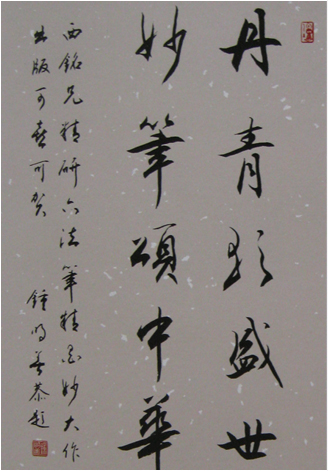 丹青盛世
妙筆頌中華
西銘兄精研六法筆精墨妙大作
出版可喜可賀
鍾明善恭題